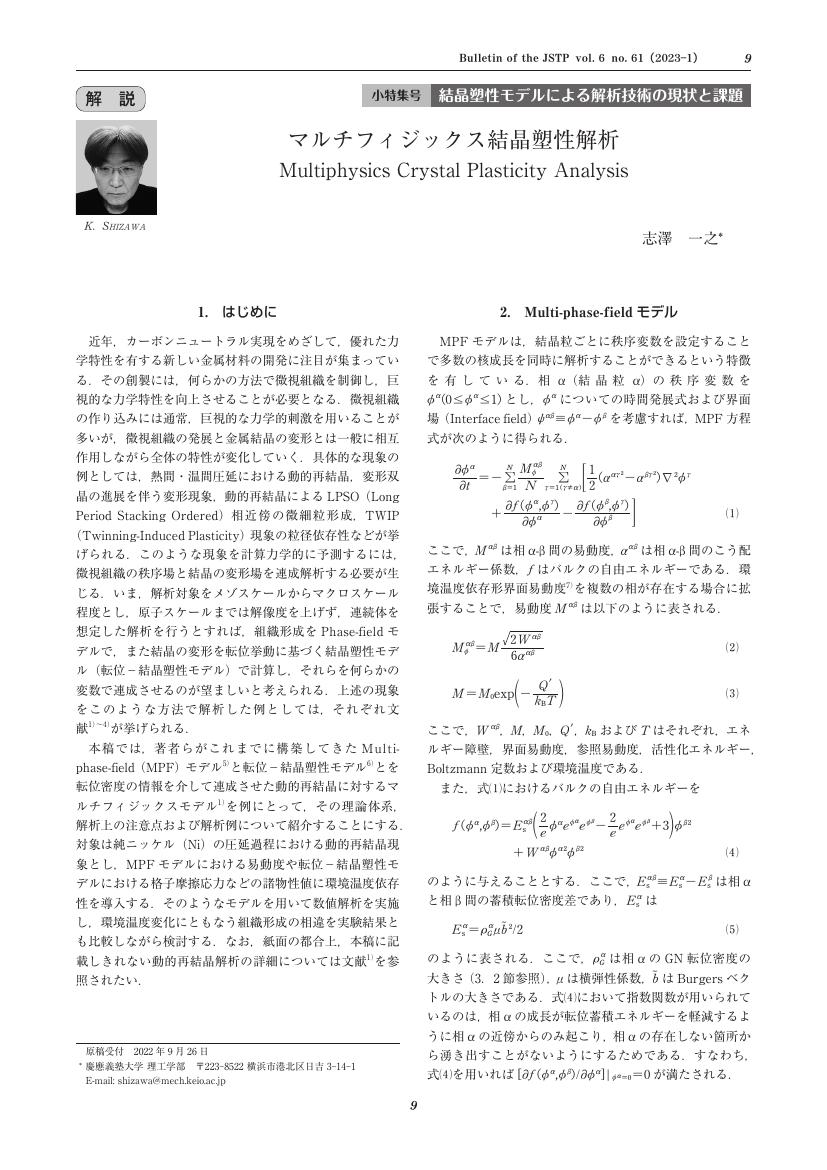 Bulletin of the JSTP vol. 6 no. 61 (2023-1) 9
解 説
小特集号 結晶塑性モデルによる解析技術の現状と課題
マルチフィジックス結晶塑性解析
Multiphysics Crystal Plasticity Analysis
K. SHIZAWA
志澤 一之*
1. はじめに
近年，カーボンニュートラル実現をめざして，優れた力
学特性を有する新しい金属材料の開発に注目が集まってい
る．その創製には，何らかの方法で微視組織を制御し，巨
視的な力学特性を向上させることが必要となる．微視組織
の作り込みには通常，巨視的な力学的刺激を用いることが
多いが，微視組織の発展と金属結晶の変形とは一般に相互
作用しながら全体の特性が変化していく．具体的な現象の
例としては，熱間・温間圧延における動的再結晶，変形双
晶の進展を伴う変形現象，動的再結晶によるLPSO（Long
Period Stacking Ordered）相近傍の微細粒形成，TWIP
（Twinning-Induced Plasticity）現象の粒径依存性などが挙
げられる．このような現象を計算力学的に予測するには，
微視組織の秩序場と結晶の変形場を連成解析する必要が生
じる．いま，解析対象をメゾスケールからマクロスケール
程度とし，原子スケールまでは解像度を上げず，連続体を
想定した解析を行うとすれば，組織形成をPhase-fieldモ
デルで，また結晶の変形を転位挙動に基づく結晶塑性モデ
ル（転位−結晶塑性モデル）で計算し，それらを何らかの
変数で連成させるのが望ましいと考えられる．上述の現象
をこのような方法で解析した例としては，それぞれ文
献1)~4)が挙げられる．
本稿では，著者らがこれまでに構築してきたMulti-
phase-field（MPF）モデル5)と転位−結晶塑性モデル6)とを
転位密度の情報を介して連成させた動的再結晶に対するマ
ルチフィジックスモデル1)を例にとって，その理論体系，
解析上の注意点および解析例について紹介することにする．
対象は純ニッケル（Ni）の圧延過程における動的再結晶現
象とし，MPFモデルにおける易動度や転位−結晶塑性モ
デルにおける格子摩擦応力などの諸物性値に環境温度依存
性を導入する．そのようなモデルを用いて数値解析を実施
し，環境温度変化にともなう組織形成の相違を実験結果と
も比較しながら検討する．なお，紙面の都合上，本稿に記
載しきれない動的再結晶解析の詳細については文献1)を参
照されたい．
原稿受付 2022年9月26日
* 慶應義塾大学 理工学部 〒223-8522 横浜市港北区日吉3-14-1
E-mail: shizawa@mech.keio.ac.jp
2. Multi-phase-fieldモデル
MPFモデルは，結晶粒ごとに秩序変数を設定すること
で多数の核成長を同時に解析することができるという特徴
を有している．相α（結晶粒α）の秩序変数を
φα(0≤φα≤1)とし，φαについての時間発展式および界面
場（Interface field）ψαβ≡φα−φβを考慮すれば，MPF方程
式が次のように得られる．
∂φα/∂t=−Σ(β=1→N) Mφαβ/N Σ(γ=1(γ≠α)→N) [1/2(ααγ2−αβγ2)∇2φγ
+∂f(φα,φγ)/∂φα−∂f(φβ,φγ)/∂φβ] (1)
ここで，Mαβは相α-β間の易動度，ααβは相α-β間のこう配
エネルギー係数，fはバルクの自由エネルギーである．環
境温度依存形界面易動度7)を複数の相が存在する場合に拡
張することで，易動度Mαβは以下のように表される．
Mφαβ=M √(2Wαβ)/6ααβ (2)
M=M0exp(−Q′/kBT) (3)
ここで，Wαβ，M，M0，Q′，kBおよびTはそれぞれ，エネ
ルギー障壁，界面易動度，参照易動度，活性化エネルギー，
Boltzmann定数および環境温度である．
また，式(1)におけるバルクの自由エネルギーを
f(φα,φβ)=Esαβ(2/e φαeφαeφβ−2/e eφαeφβ+3)φβ2
+Wαβφα2φβ2 (4)
のように与えることとする．ここで，Esαβ≡Esα−Esβは相α
と相β間の蓄積転位密度差であり，Esαは
Esα=ρGαμb̃2/2 (5)
のように表される．ここで，ρGαは相αのGN転位密度の
大きさ（3．2節参照），μは横弾性係数，b̃はBurgersベク
トルの大きさである．式(4)において指数関数が用いられて
いるのは，相αの成長が転位蓄積エネルギーを軽減するよ
うに相αの近傍からのみ起こり，相αの存在しない箇所か
ら湧き出すことがないようにするためである．すなわち，
式(4)を用いれば[∂f(φα,φβ)/∂φα]|φα=0=0が満たされる．
9